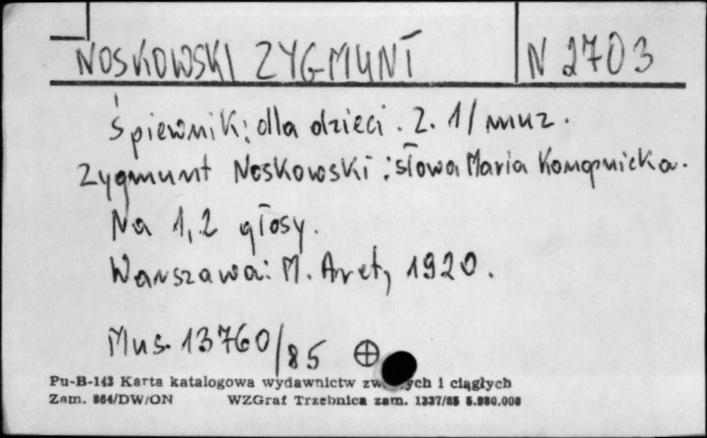 NOSKOWSKI ZYGMUNT N 2703
Śpiewnik: dla dzieci. Z. 1/ muz.
Zygmunt Noskowski : słowa Maria Konopnicka.
Na 1, 2 głosy.
Warszawa: M. Arct, 1920.
Mus. 13760/85
Pu-B-143 Karta katalogowa wydawnictw i ciągłych
Zam. 864/DW/ON WZGraf Trzebnica zam. 1337/85 5.980.000